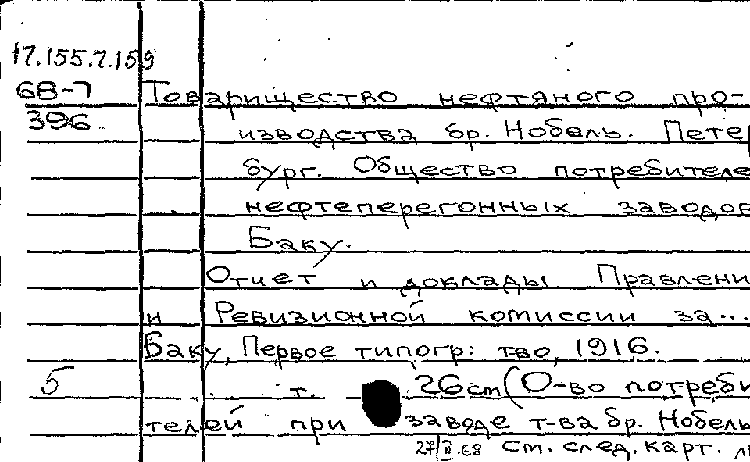 17.155.7.159
68-7 Товарищество нефтяного про-
396 изводства бр. Нобель. Петер
бург. Общество потребителе
нефтеперегонных заводов
Баку.
Отчет и доклады Правлени
и Ревизионной комиссии за...
Баку, Первое типогр: т-во, 1916.
5 т. 26cm (О-во потреби
телей при заводе т-ва бр. Нобель
см. след. карт.